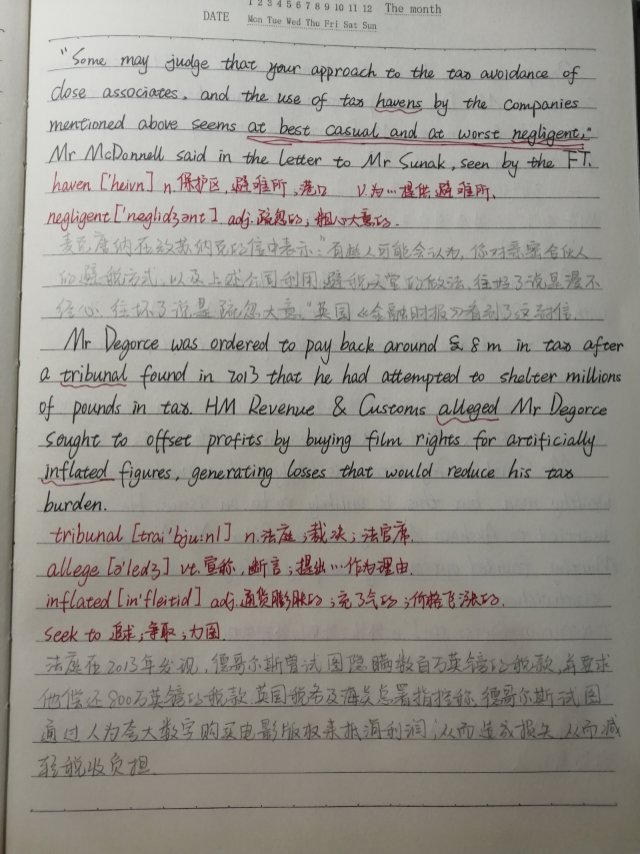 1 2 3 4 5 6 7 8 9 10 11 12 The month
DATE Mon Tue Wed Thu Fri Sat Sun
"Some may judge that your approach to the tax avoidance of
close associates, and the use of tax havens by the companies
mentioned above seems at best casual and at worst negligent,"
Mr McDonnell said in the letter to Mr Sunak, seen by the FT.
haven ['heivn] n.保护区,避难所,港口 v.为…提供避难所.
negligent ['neglidʒənt] adj.疏忽的;粗心大意的.
麦克唐纳在致苏纳克的信中表示:"有些人可能会认为,你对亲密合伙人
的避税方式,以及上述公司利用避税天堂的做法,往好了说是漫不
经心,往坏了说是疏忽大意."英国《金融时报》看到了这封信.
Mr Degorce was ordered to pay back around £8m in tax after
a tribunal found in 2013 that he had attempted to shelter millions
of pounds in tax. HM Revenue & Customs alleged Mr Degorce
sought to offset profits by buying film rights for artificially
inflated figures, generating losses that would reduce his tax
burden.
tribunal [trai'bju:nl] n.法庭;裁决;法官席.
allege [ə'ledʒ] vt.宣称,断言;提出…作为理由.
inflated [in'fleitid] adj.通货膨胀的;充了气的;价格飞涨的.
seek to 追求;争取;力图.
法庭在2013年发现,德哥尔斯曾试图隐瞒数百万英镑的税款,并要求
他偿还800万英镑的税款.英国税务及海关总署指控称,德哥尔斯试图
通过人为夸大数字购买电影版权来抵消利润,从而造成损失,从而减
轻税收负担.